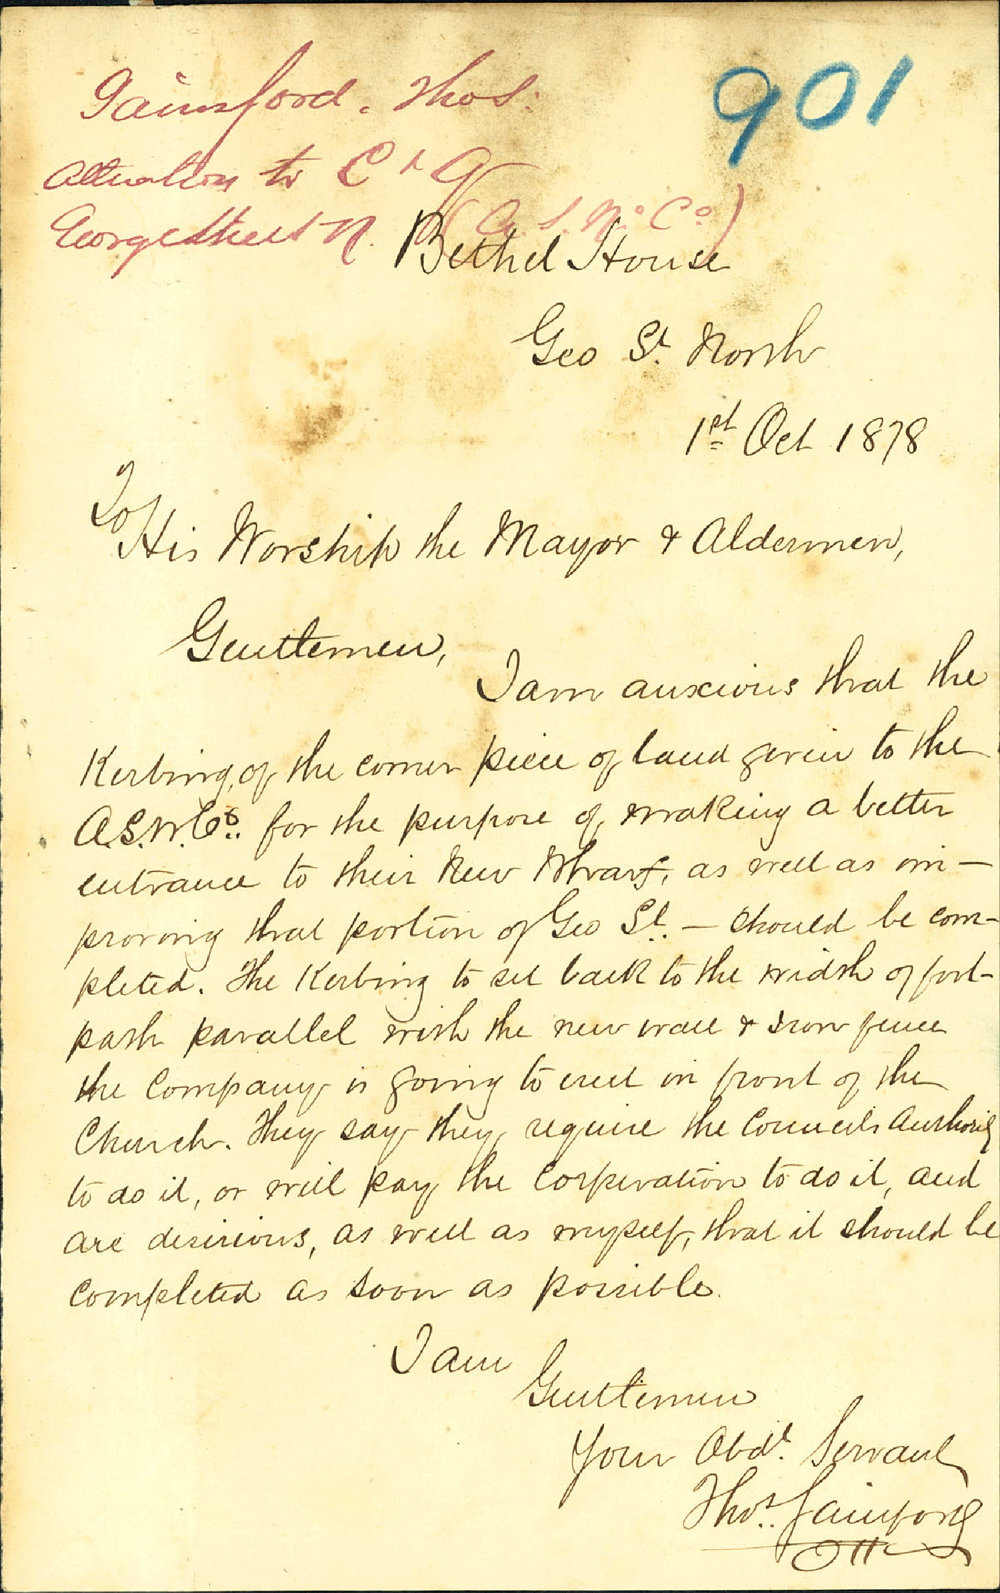 Gainsford. Thos:
901
Alteration to C & G
George Street N. (A. S. N. Co)
Bethel House
Geo St. North
1st Oct 1878
To
His Worship the Mayor & Aldermen,
Gentlemen,
I am anxious that the
Kerbing, of the corner piece of land given to the
A.S.N. Co. for the purpose of, making a better
entrance to their New Wharf, as well as im-
proving that portion of Geo St. - should be com-
pleted. The Kerbing to set back to the width of foot-
path parallel with the new wall & iron fence
the Company is going to erect in front of the
Church. They say they, require the Councils Authority
to do it, or will pay the Corporation to do it, and
are desirious, as well as myself, that it should be
completed as soon as possible.
I am
Gentlemen
Your Obdt. Servant
Thos. Gainsford